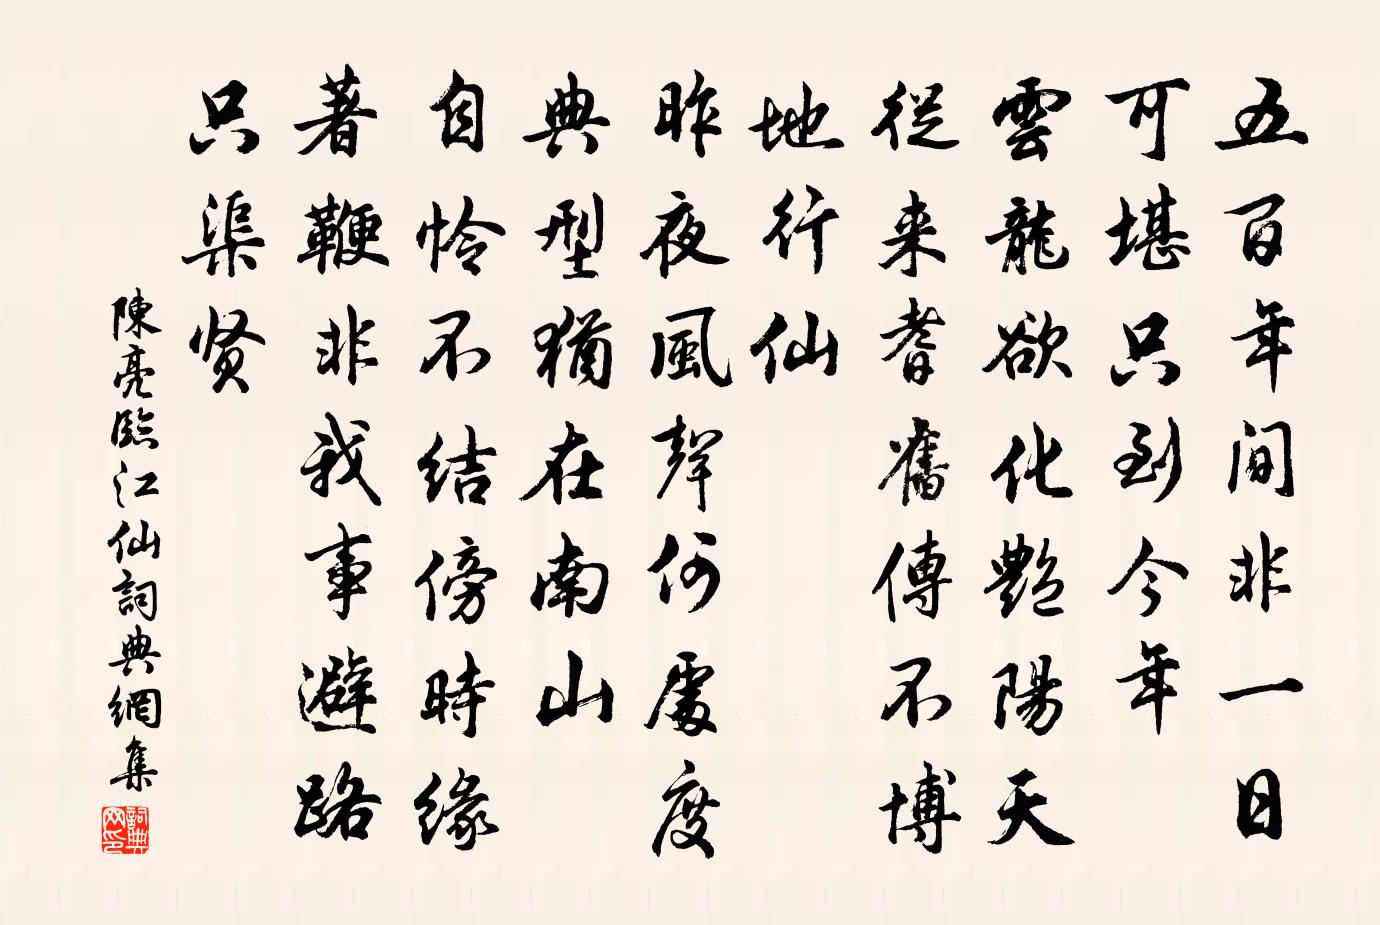 五百年間非一日
可堪只到今年
雲龍欲化艷陽天
從来耆舊傳不博
地行仙
昨夜風聲何處度
典型猶在南山
自怜不結傍時緣
著鞭非我事避路
只渠贤
陳亮臨江仙詞典網集
詞典网印